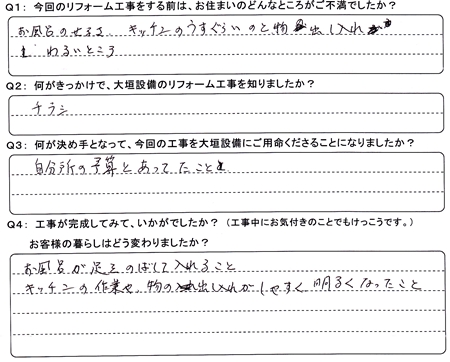 Q1: 今回のリフォーム工事をする前は、お住まいのどんなところがご不満でしたか?
お風呂のせまさ キッチンのうすぐらいのと物 出し入れが
しわるいところ
Q2: 何がきっかけで、大垣設備のリフォーム工事を知りましたか?
チラシ
Q3: 何が決め手となって、今回の工事を大垣設備にご用命くださることになりましたか?
自分所の予算とあってたこと
Q4: 工事が完成してみて、いかがでしたか?(工事中にお気付きのことでもけっこうです。)
お客様の暮らしはどう変わりましたか?
お風呂が足をのばして入れること
キッチンの作業や、物の出し入れがしやすく明るくなったこと